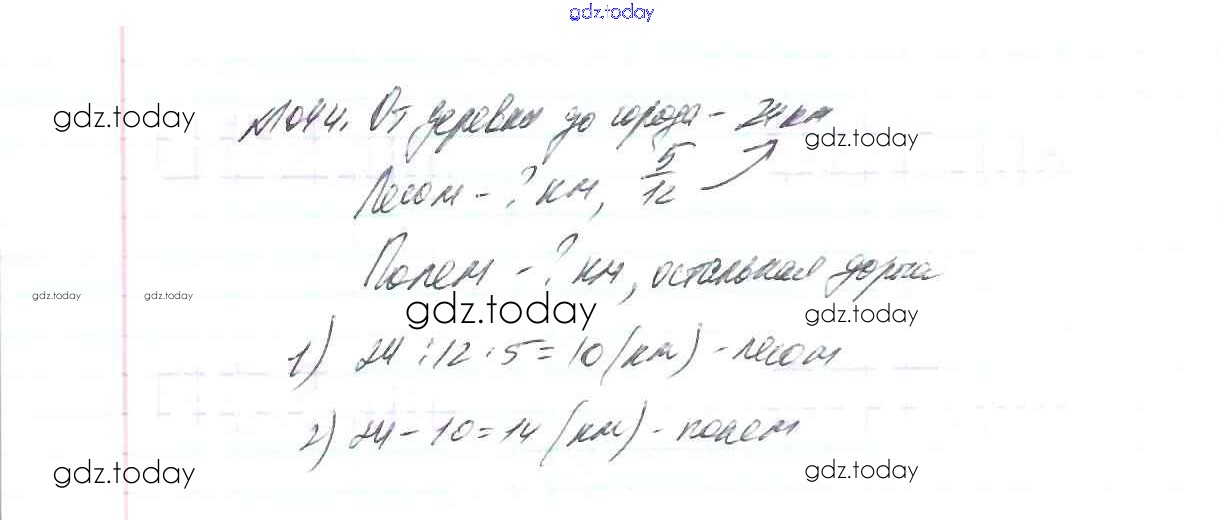 gdz.today
gdz.today
№1044. От деревни до города - 24 км
gdz.today
Лесом - ? км, 5/12
Полем - ? км, остальная дорога
gdz.today gdz.today gdz.today gdz.today
1) 24 : 12 · 5 = 10 (км) - лесом
gdz.today
2) 24 - 10 = 14 (км) - полем
gdz.today gdz.today